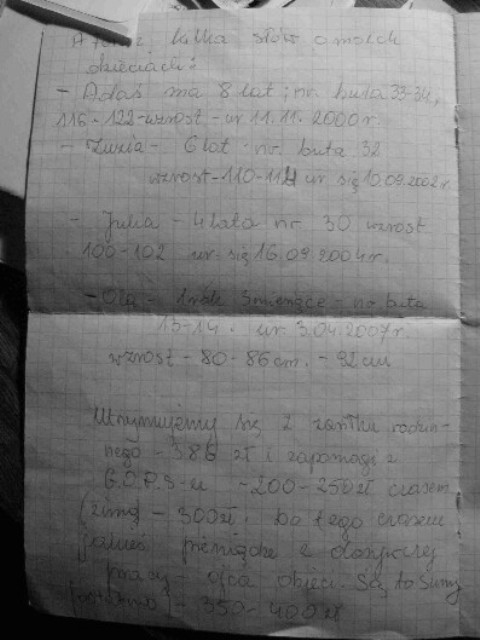 A teraz kilka słów o moich
dzieciach:
- Adaś ma 8 lat; nr. buta 33-34,
116-122-wzrost - ur 11.11.2000r.
- Zuzia - 6 lat - nr. buta 32
wzrost-110-114 ur się 10.09.2002r
- Julia - 4 lata nr 30 wzrost
100-102 ur się 16.09.2004r.
- Ola - 1 rok 3 miesiące - nr buta
13-14. ur 3.04.2007r.
wzrost - 80-86 cm. - 92 cm
Utrzymujemy się z zasiłku rodzin-
nego - 386 zł i zapomogi z
G.O.P.S-u -200-250zł czasem
(zimą) - 300zł. Do tego czasem
jakieś pieniądze z dorywczej
pracy - ojca dzieci. Są to sumy
- 350-400 zł